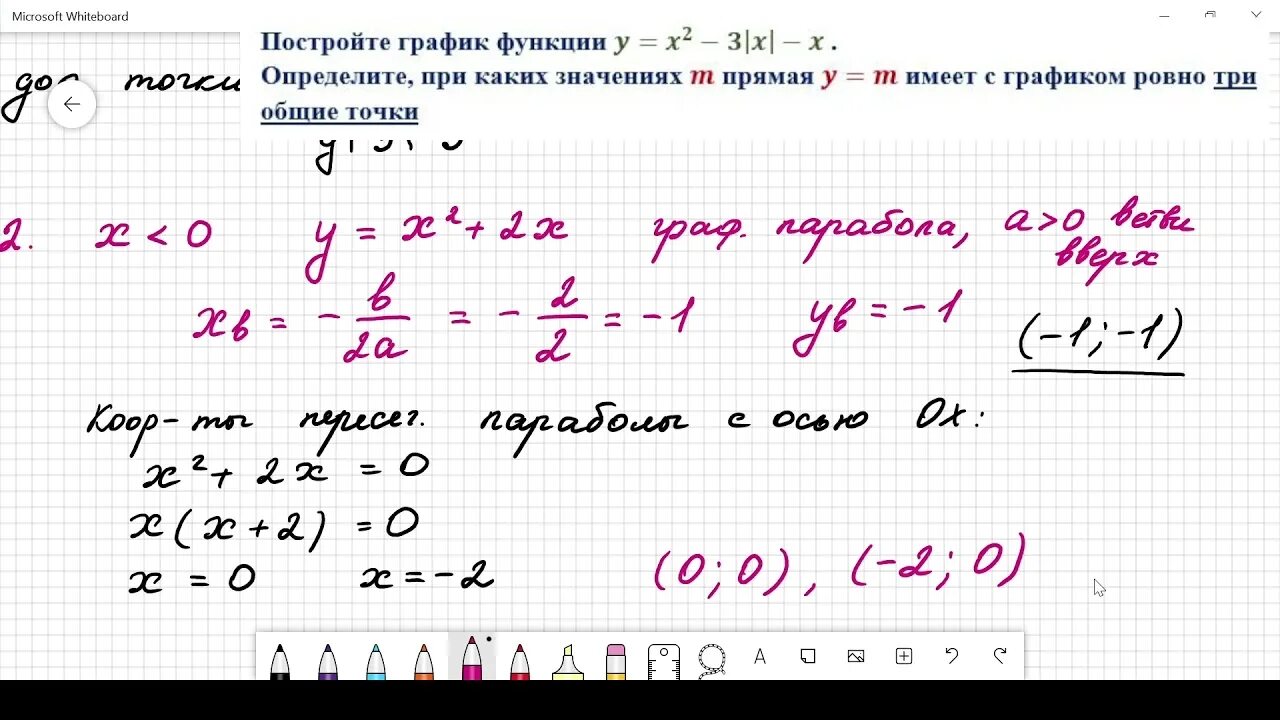 Microsoft Whiteboard
Постройте график функции y = x² − 3|x| − x .
Определите, при каких значениях m прямая y = m имеет с графиком ровно три
общие точки
доп точки
2. x < 0 y = x² + 2x граф. парабола, a>0 ветви
вверх
xв = − в/2a = − 2/2 = −1 yв = −1 (−1; −1)
Коор-ты пересеч. параболы с осью Ox:
x² + 2x = 0
x(x+2) = 0
x = 0 x = −2 (0; 0), (−2; 0)
A